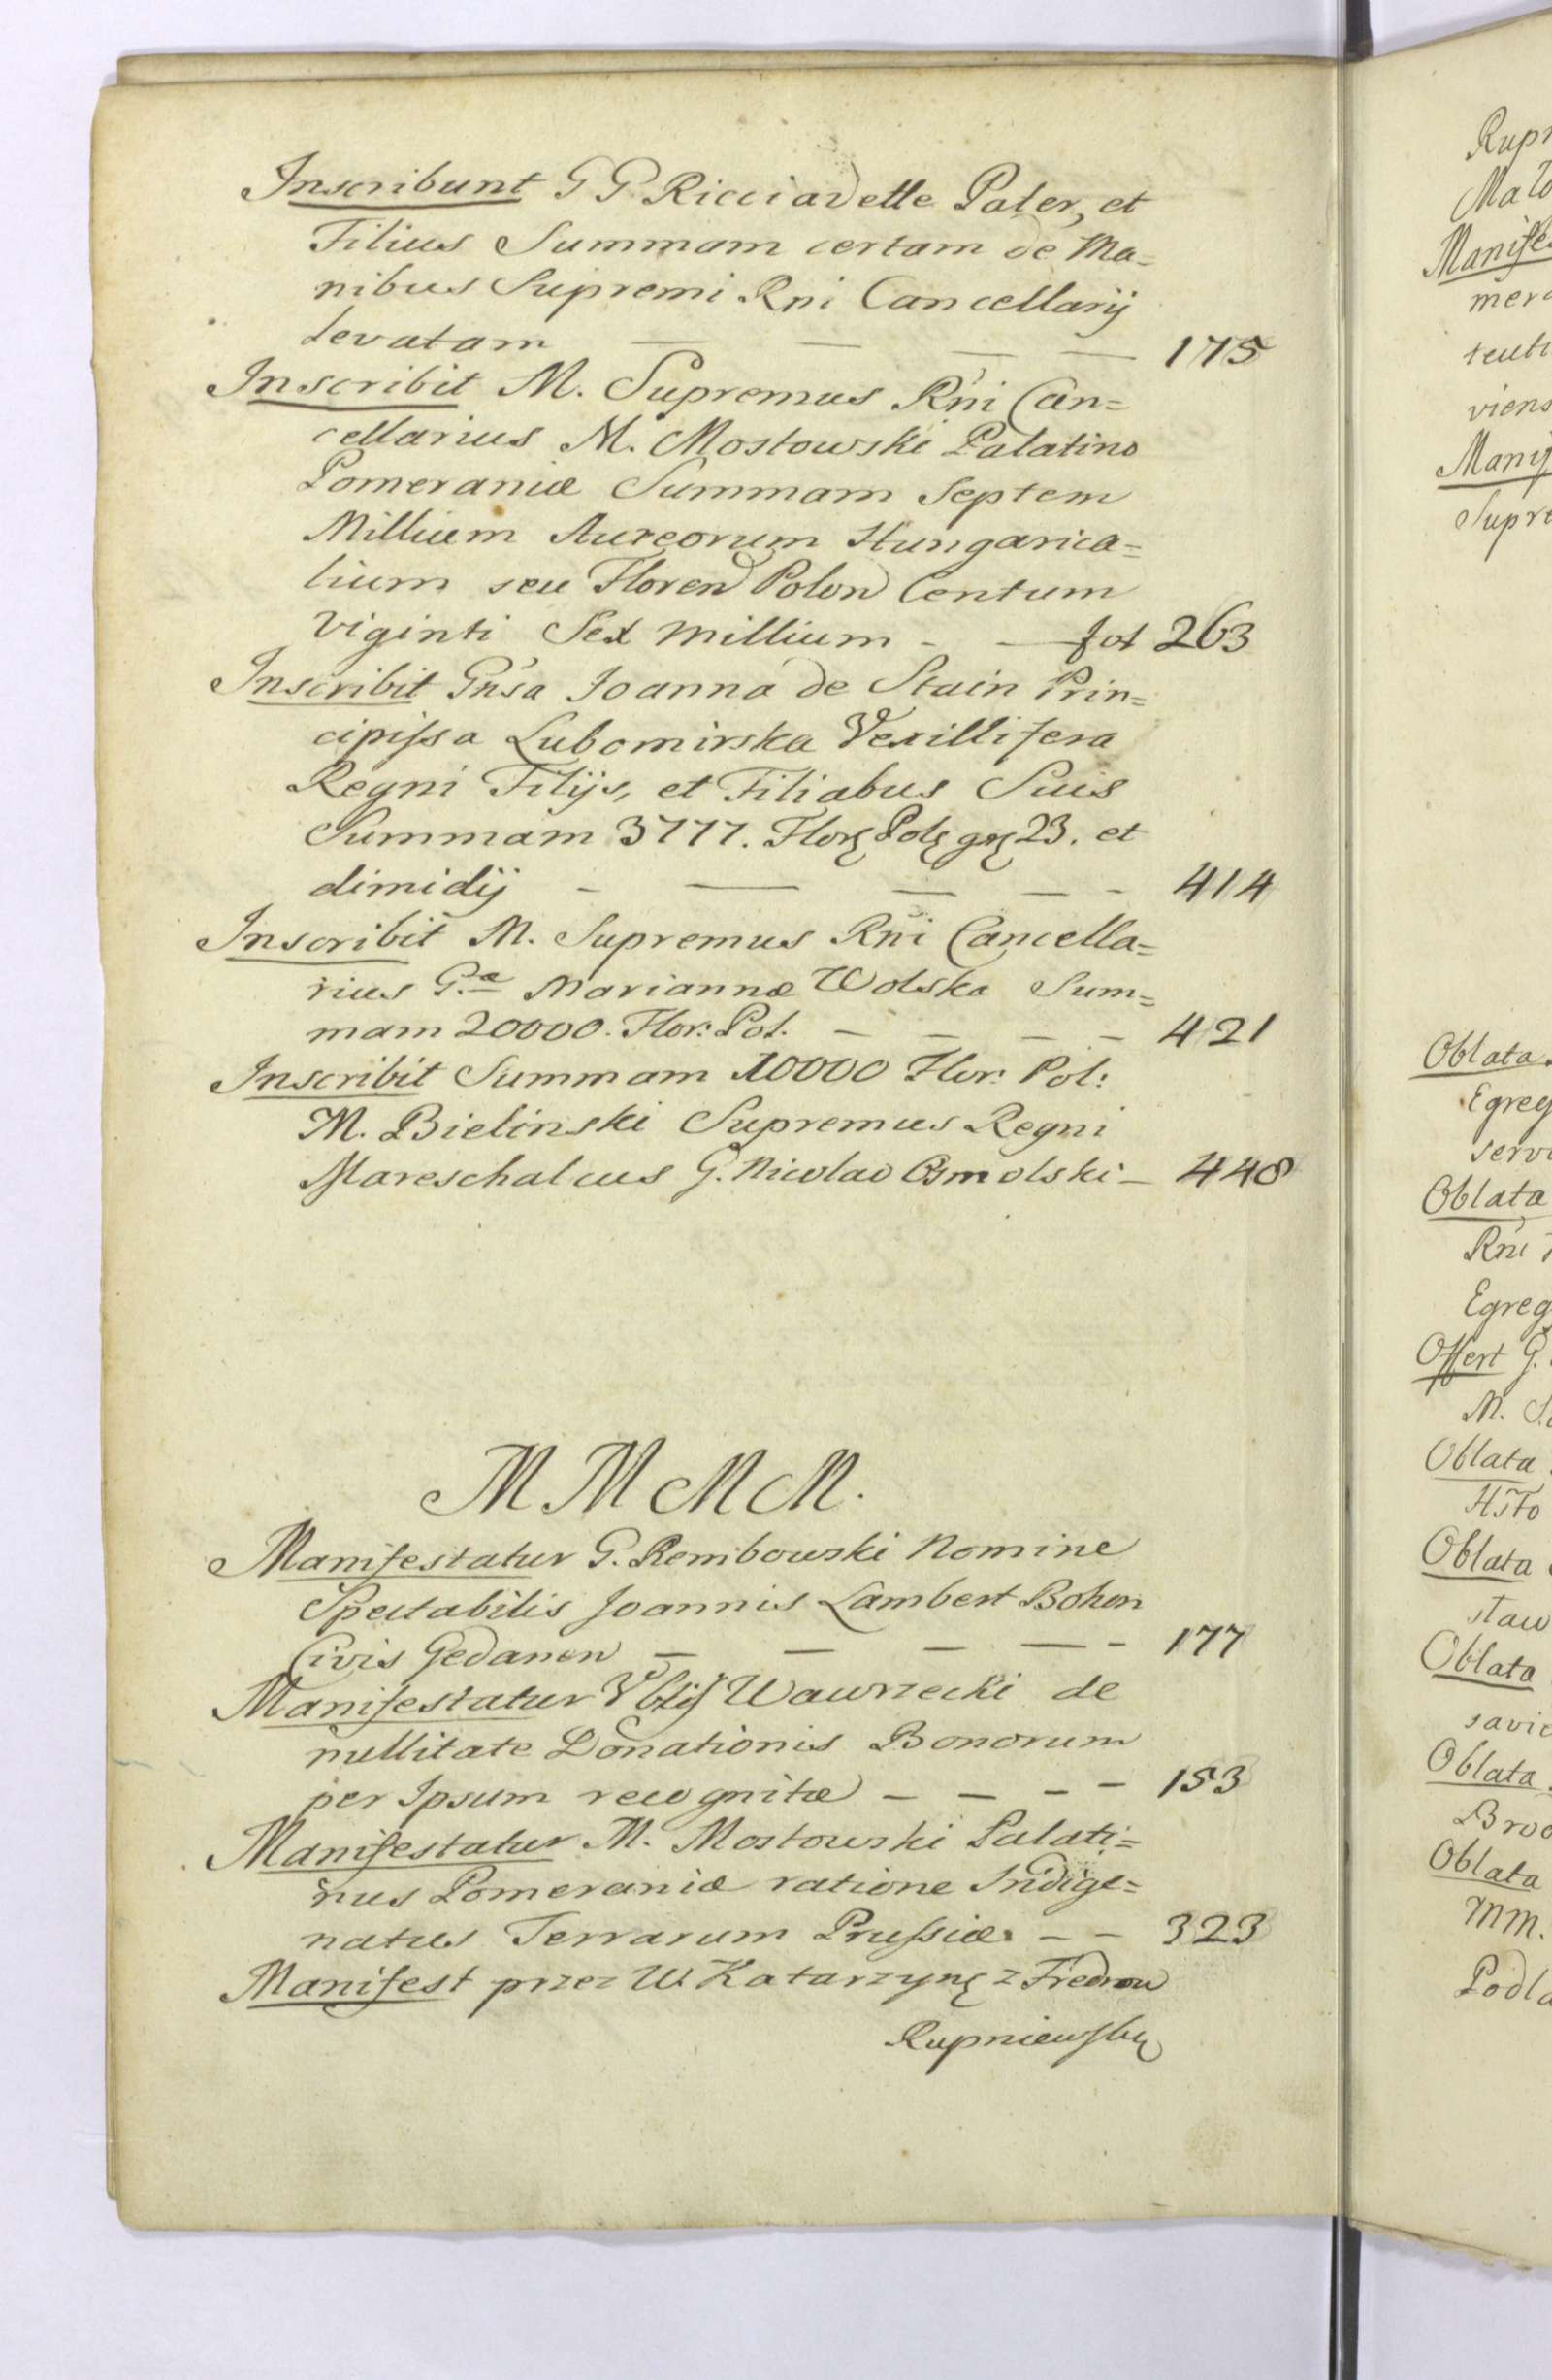 Inscribunt G G Ricciadelle Pater, et
Filius Summam certam de Ma=
nibus Supremi Rni Cancellarij
levatam — — — — 175
Inscribit M. Supremus Rni Can=
cellarius M. Mostowski Palatino
Pomeraniæ Summam Septem
Millium Aureorum Hungarica=
lium seu Floren Polon Centum
Viginti Sex Millium - — fol 263
Inscribit Gnsa Joanna de Stain Prin=
cipissa Lubomirska Vexillifera
Regni Filijs, et Filiabus Suis
Summam 3777. Flor Pol gr 23. et
dimidij - — — — - 414
Inscribit M. Supremus Rni Cancella=
rius G.æ Mariannæ Wolska Sum=
mam 20000. Flor: Pol. — — — - 421
Inscribit Summam 10000 Flor: Pol:
M. Bielinski Supremus Regni
Mareschalcus G. Nicolao Osmolski — 448
M M M M.
Manifestatur G. Rembowski Nomine
Spectabilis Joannis Lambert Bohon
Civis Gedanen — — — — - 177
Manifestatur Wawrzecki de
nullitate Donationis Bonorum
per Ipsum recognitæ — — - — 153
Manifestatur M. Mostowski Palati=
nus Pomeraniæ ratione Indige=
natus Terrarum Prussiæ. — - 323
Manifest przez W. Katarzynę z Fredrow
Rupniewską
Manife
mer
viens
Supre
Oblata.
Egreg
servi
Oblata
Rni
Egreg
Offert G.
M.
Oblata
Oblata
staw
Oblata
savie
Oblata.
Oblata
MM.
Podla